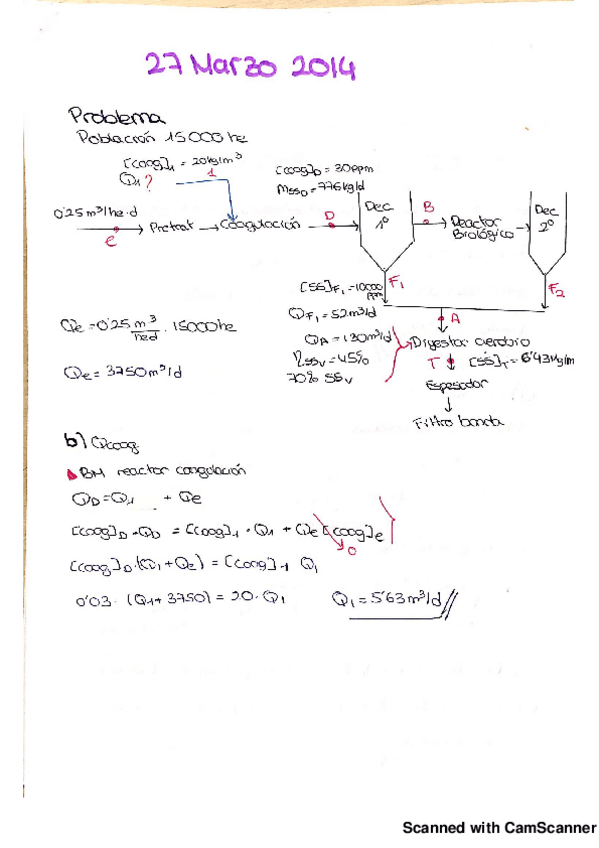 27 Marzo 2014
Problema
Población 15000 he
[coag]₁ = 20kg/m³
Q₁ ?
1
[coag]D = 30ppm
MSSD = 776kg/d
0'25 m³/he·d
e
Pretrat
Coagulación
D
Dec
1º
B
Reactor
Biológico
Dec
2º
[SS]F₁ = 10000
ppm
F₁
F₂
QF₁ = 52m³/d
A
Qe = 0'25 m³/he·d · 15000he
QA = 130m³/d
Digestor aerobio
ηSSV = 45%
T
[SS]T = 6'43kg/m
Qe = 3750m³/d
70% SSV
Espesador
Filtro banda
b) Qcoag
BM reactor coagulación
QD = Q₁ + Qe
[coag]D · QD = [coag]₁ · Q₁ + Qe [coag]e
0
[coag]D · (Q₁ + Qe) = [coag]₁ Q₁
0'03 · (Q₁ + 3750) = 20 · Q₁
Q₁ = 5'63m³/d
Scanned with CamScanner